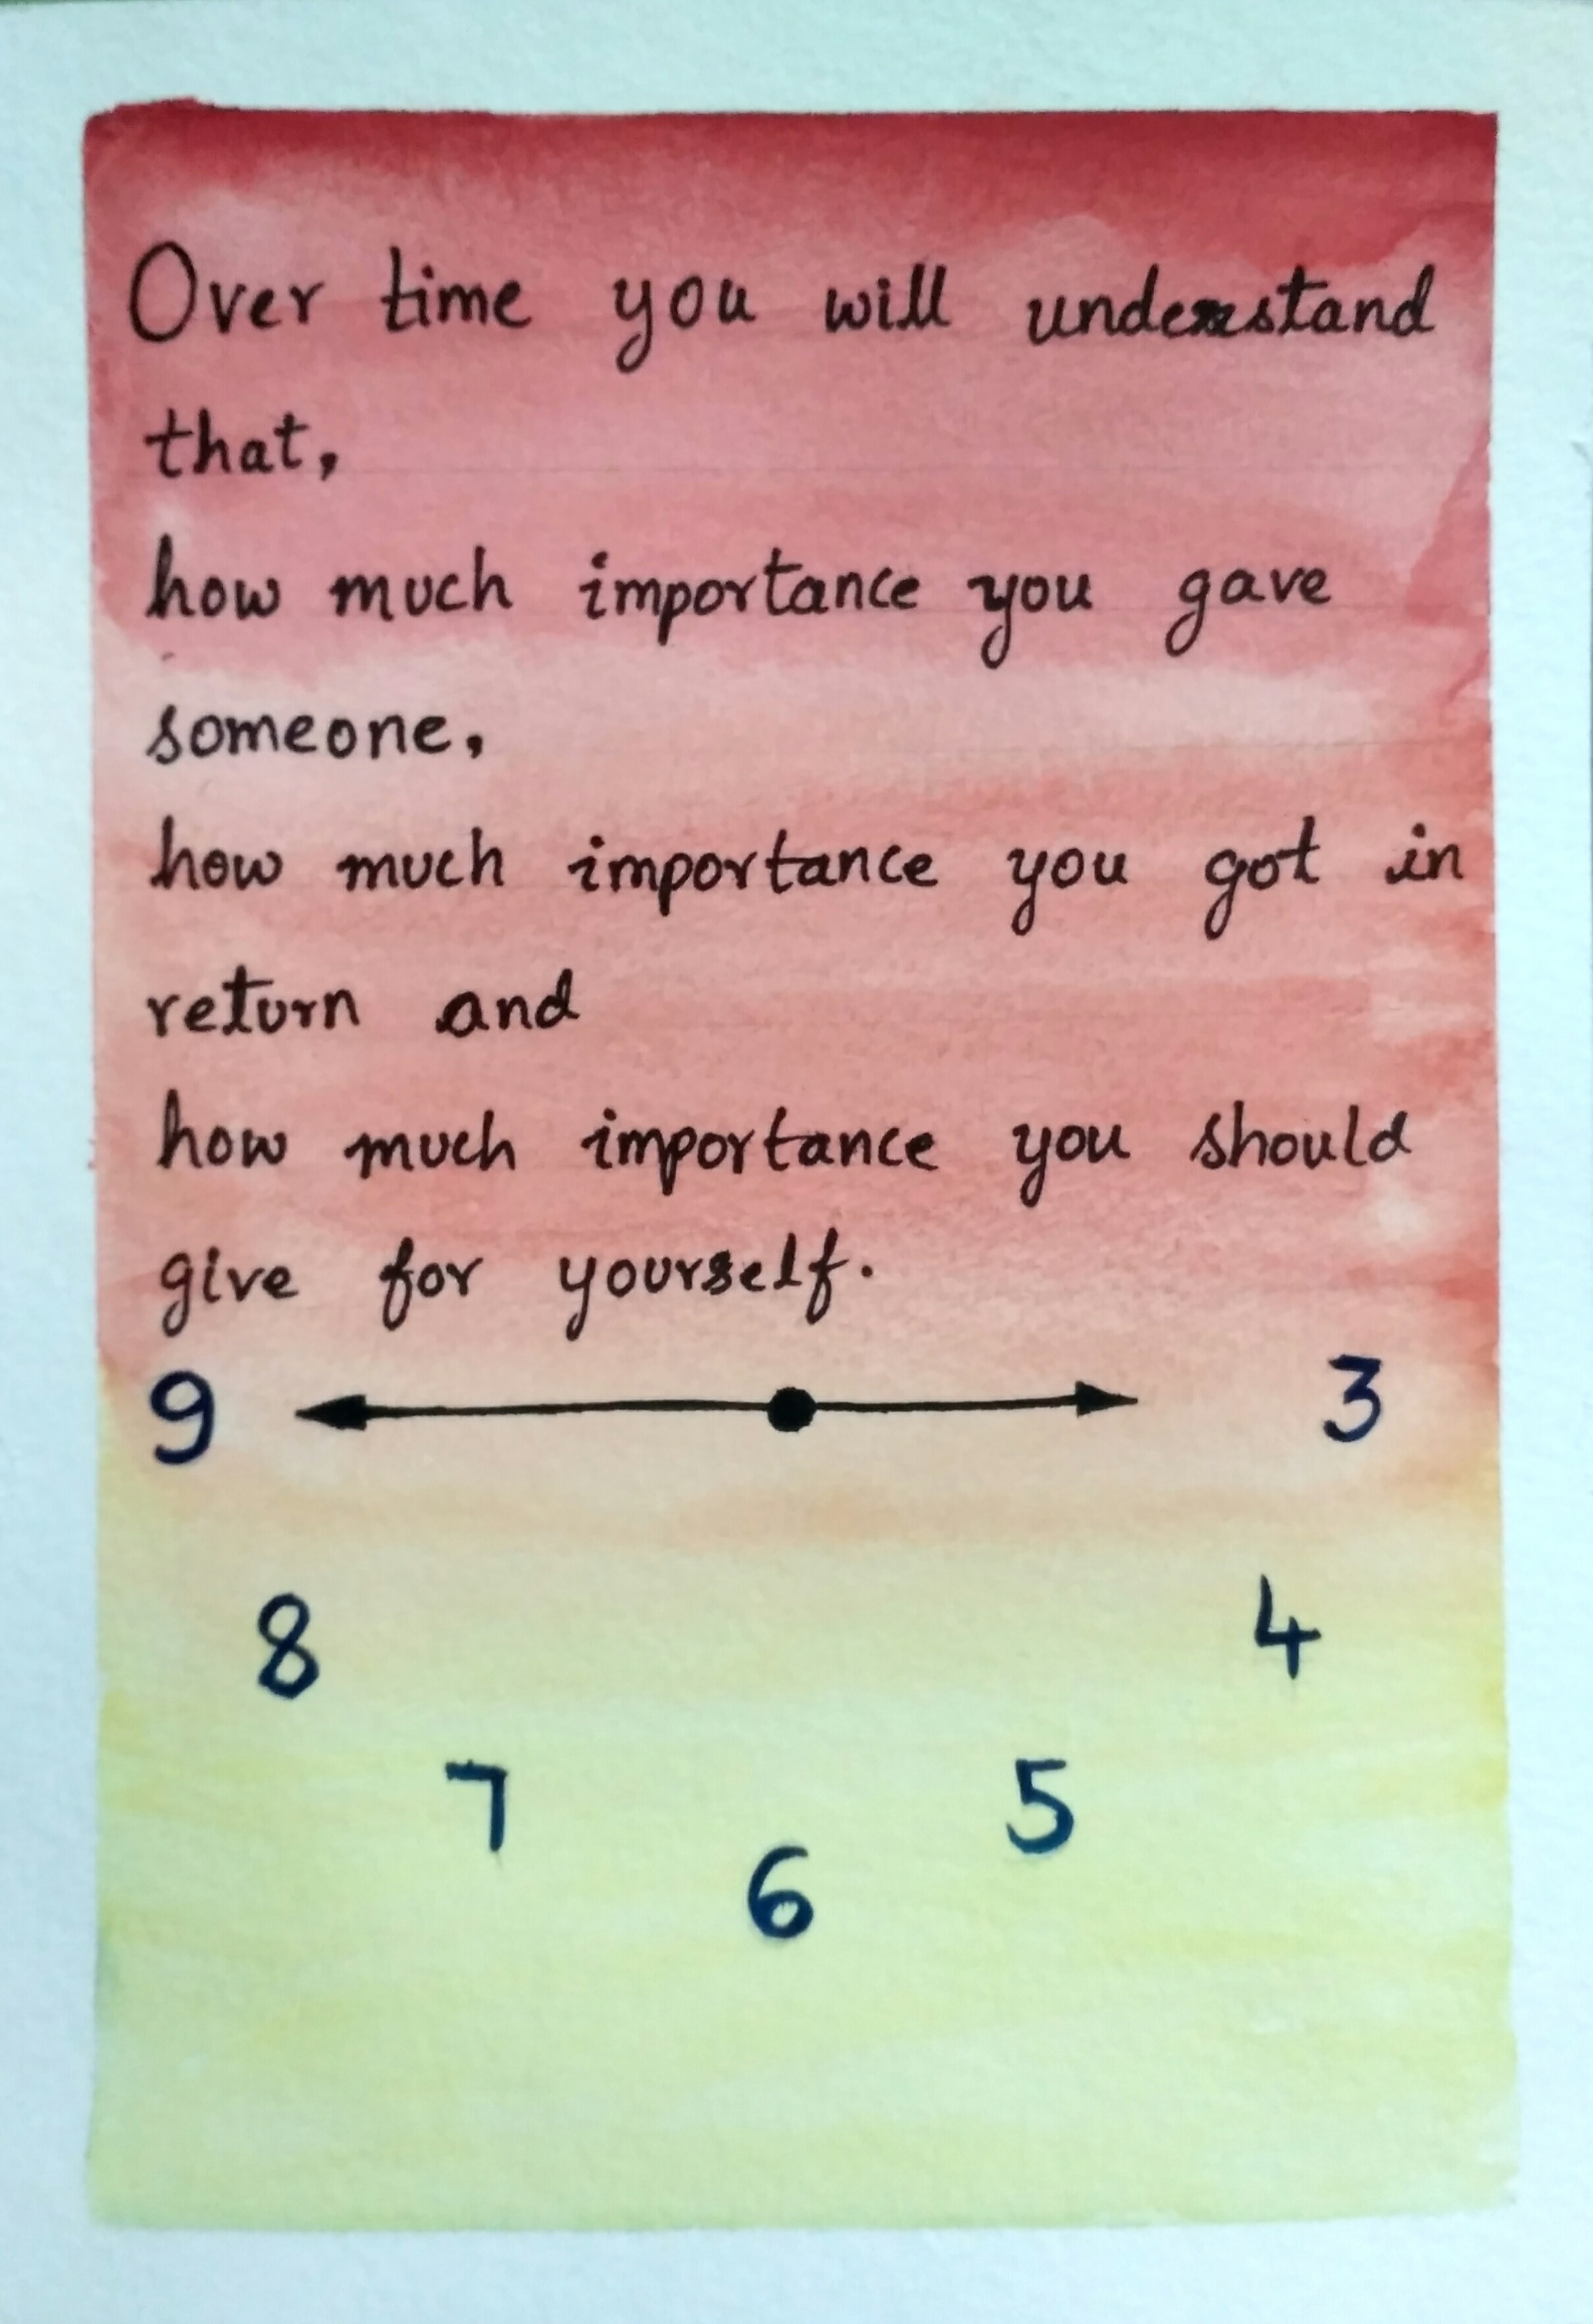 Over time you will understand
that,
how much importance you gave
someone,
how much importance you got in
return and
how much importance you should
give for yourself.
9 3
8 4
7 5
6